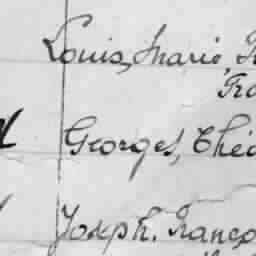 Louis, Marie,
Georges, Thé
Joseph, Franço